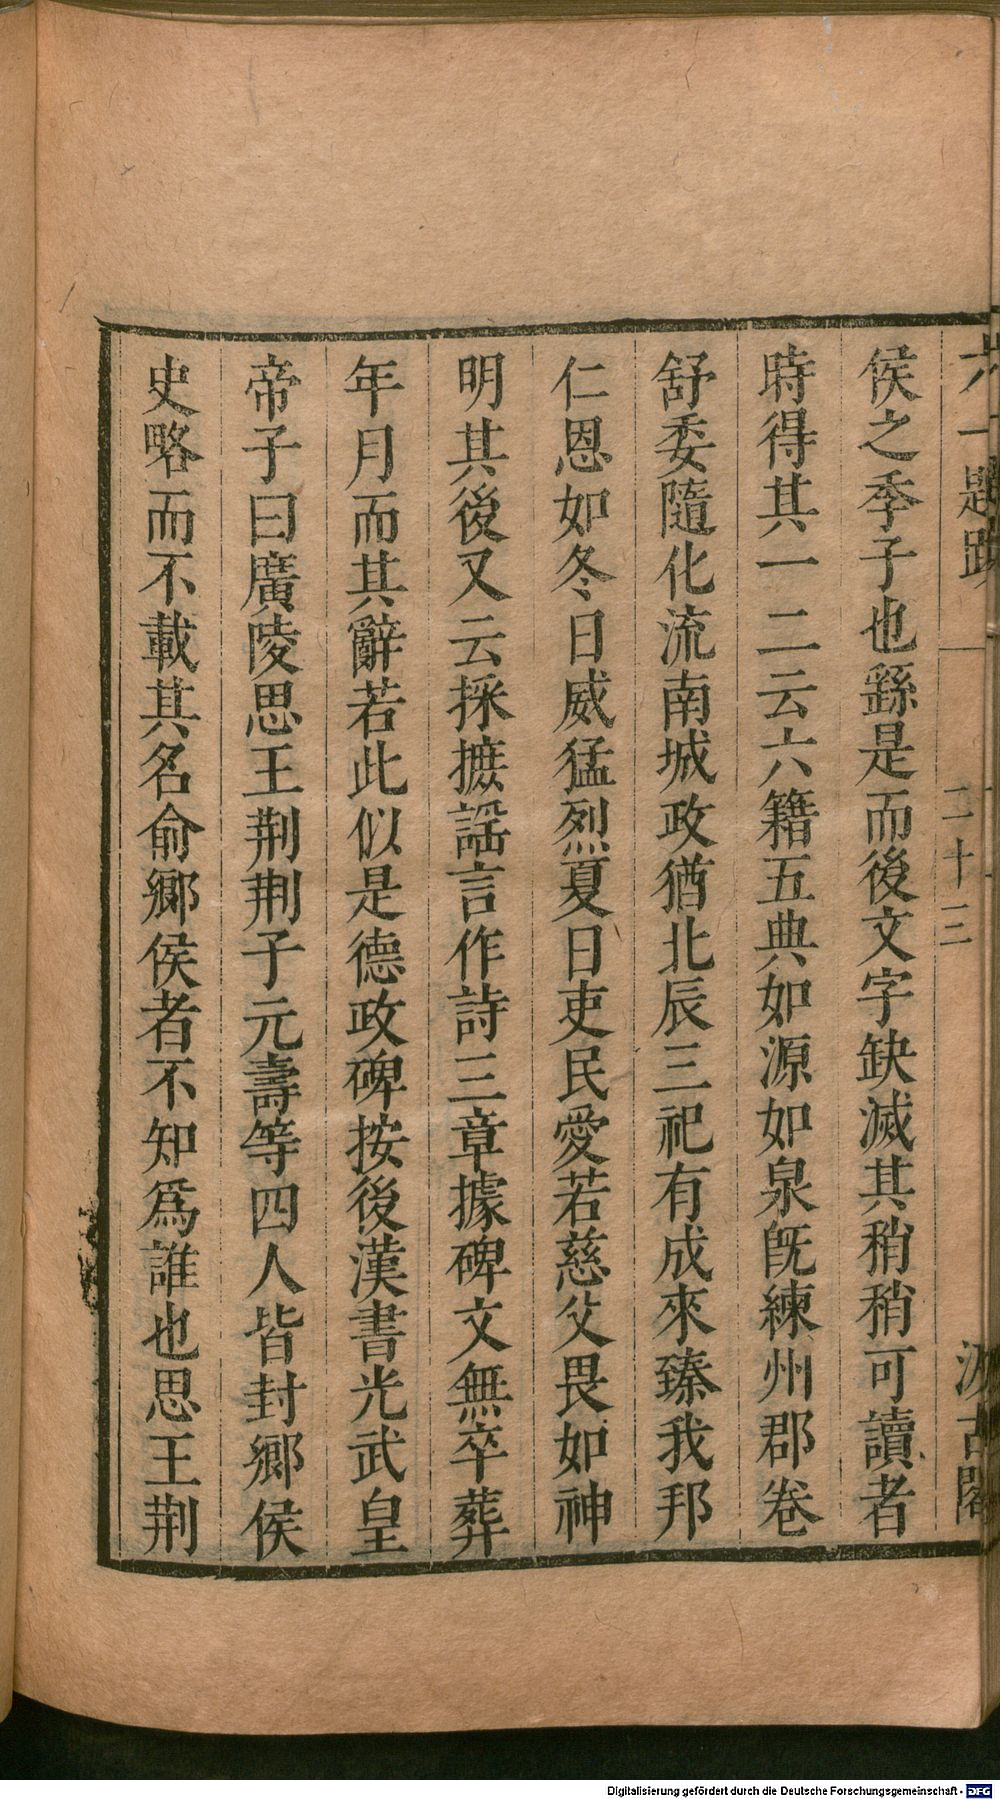 六一題跋
二十三
汲古閣
侯之季子也繇是而後文字缺滅其稍稍可讀者
時得其一二云六籍五典如源如泉旣練州郡卷
舒委隨化流南城政猶北辰三祀有成來臻我邦
仁恩如冬日威猛烈夏日吏民愛若慈父畏如神
明其後又云採摭謡言作詩三章據碑文無卒葬
年月而其辭若此似是德政碑按後漢書光武皇
帝子曰廣陵思王荆荆子元壽等四人皆封鄉侯
史略而不載其名俞鄉侯者不知爲誰也思王荆
Digitalisierung gefördert durch die Deutsche Forschungsgemeinschaft - DFG